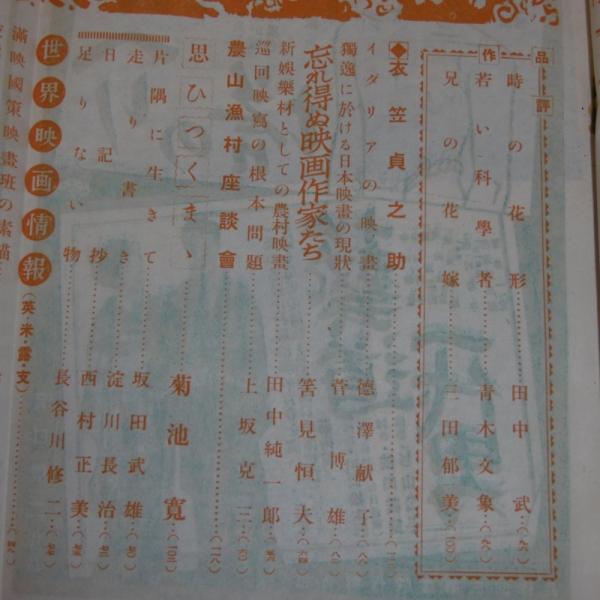 品評
作
時の花形 田中武 (九六)
若い科學者 青木文象 (九八)
兄の花嫁 三田郁美 (一〇〇)
◆衣笠貞之助
イタリアの映畫 德澤献子
獨逸に於ける日本映畫の現狀 菅博雄
忘れ得ぬ映画作家たち 筈見恒夫
新娯樂材としての農村映畫 田中純一郎
巡回映寫の根本問題 上坂克三
農山漁村座談會 (一一八)
思ひつくまゝ 菊池寬 (一〇三)
片隅に生きて 坂田武雄
走り書き 淀川長治
日記抄 西村正美
足りない物 長谷川修二
世界映画情報 (英・米・露・支)
滿映國策映畫班の素描